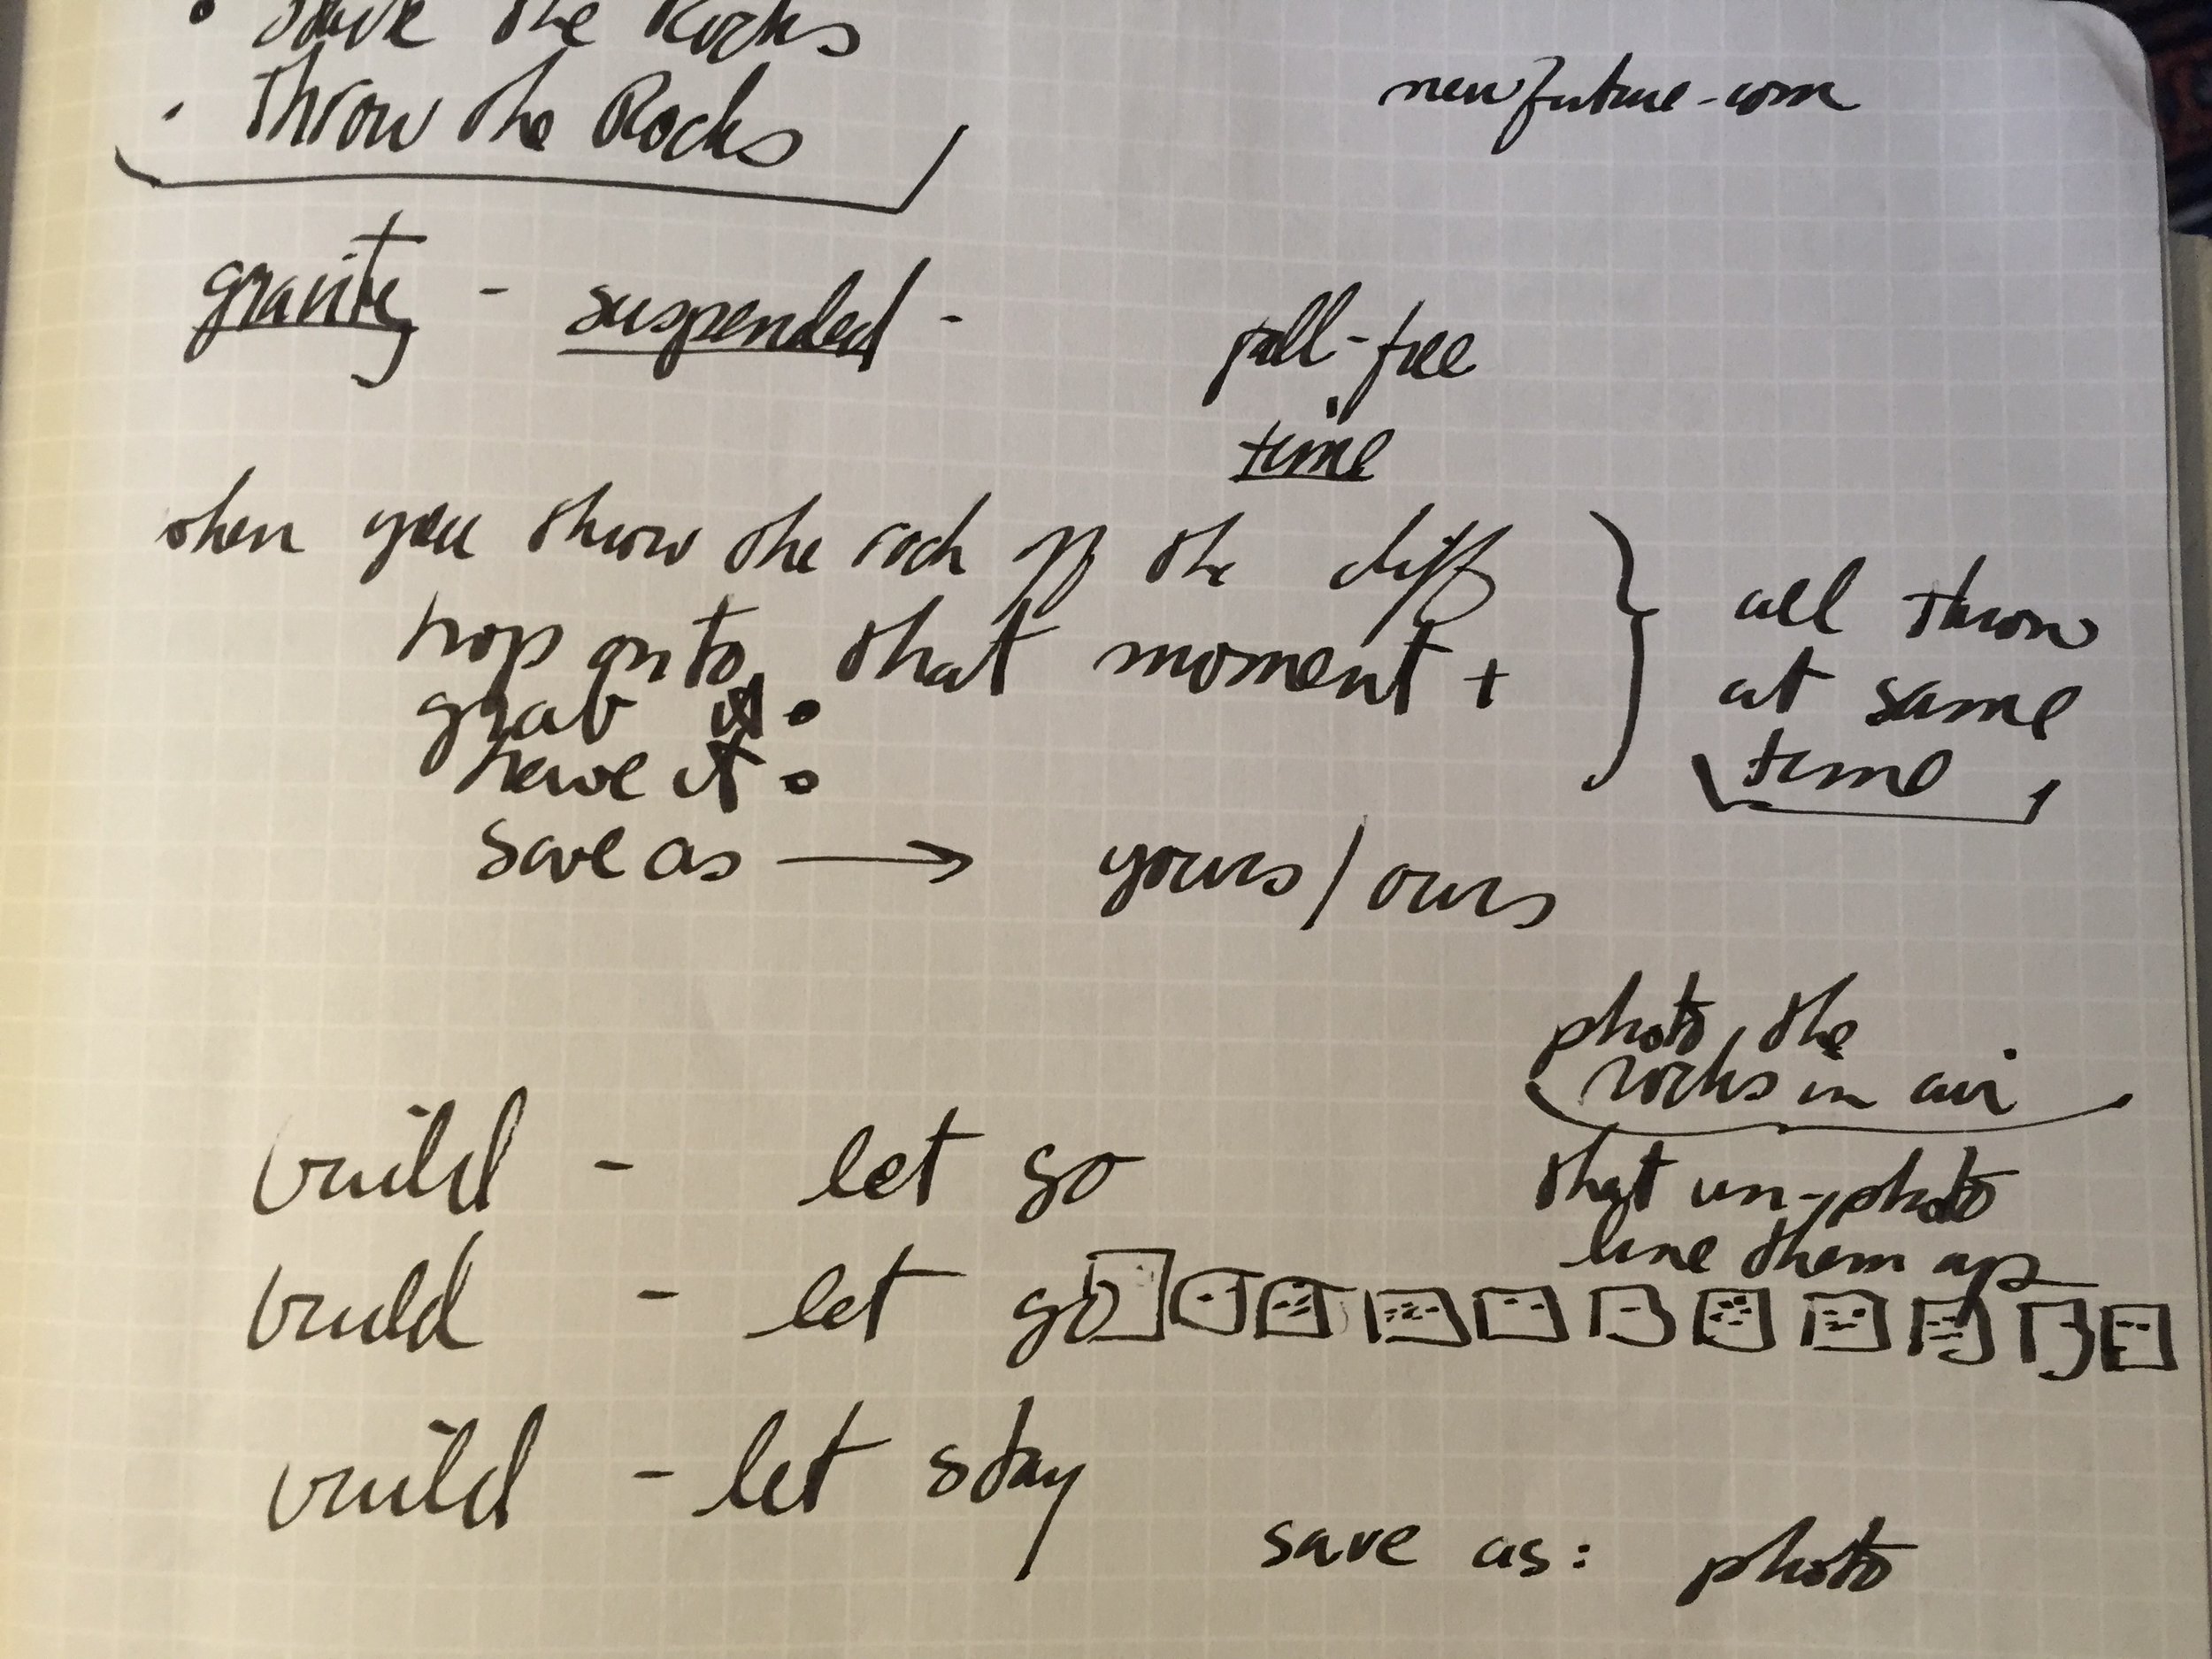 the Rocks
• Throw the Rocks
newfuture.com
gravity - suspended -
pull-free
time
when you throw the rock off the cliff
hop onto that moment +
grab it.
have it.
save as → yours/ours
all throw
at same
time
photo the
rocks in air
that un-photo
line them up
build - let go
build - let go
build - let stay
save as: photo